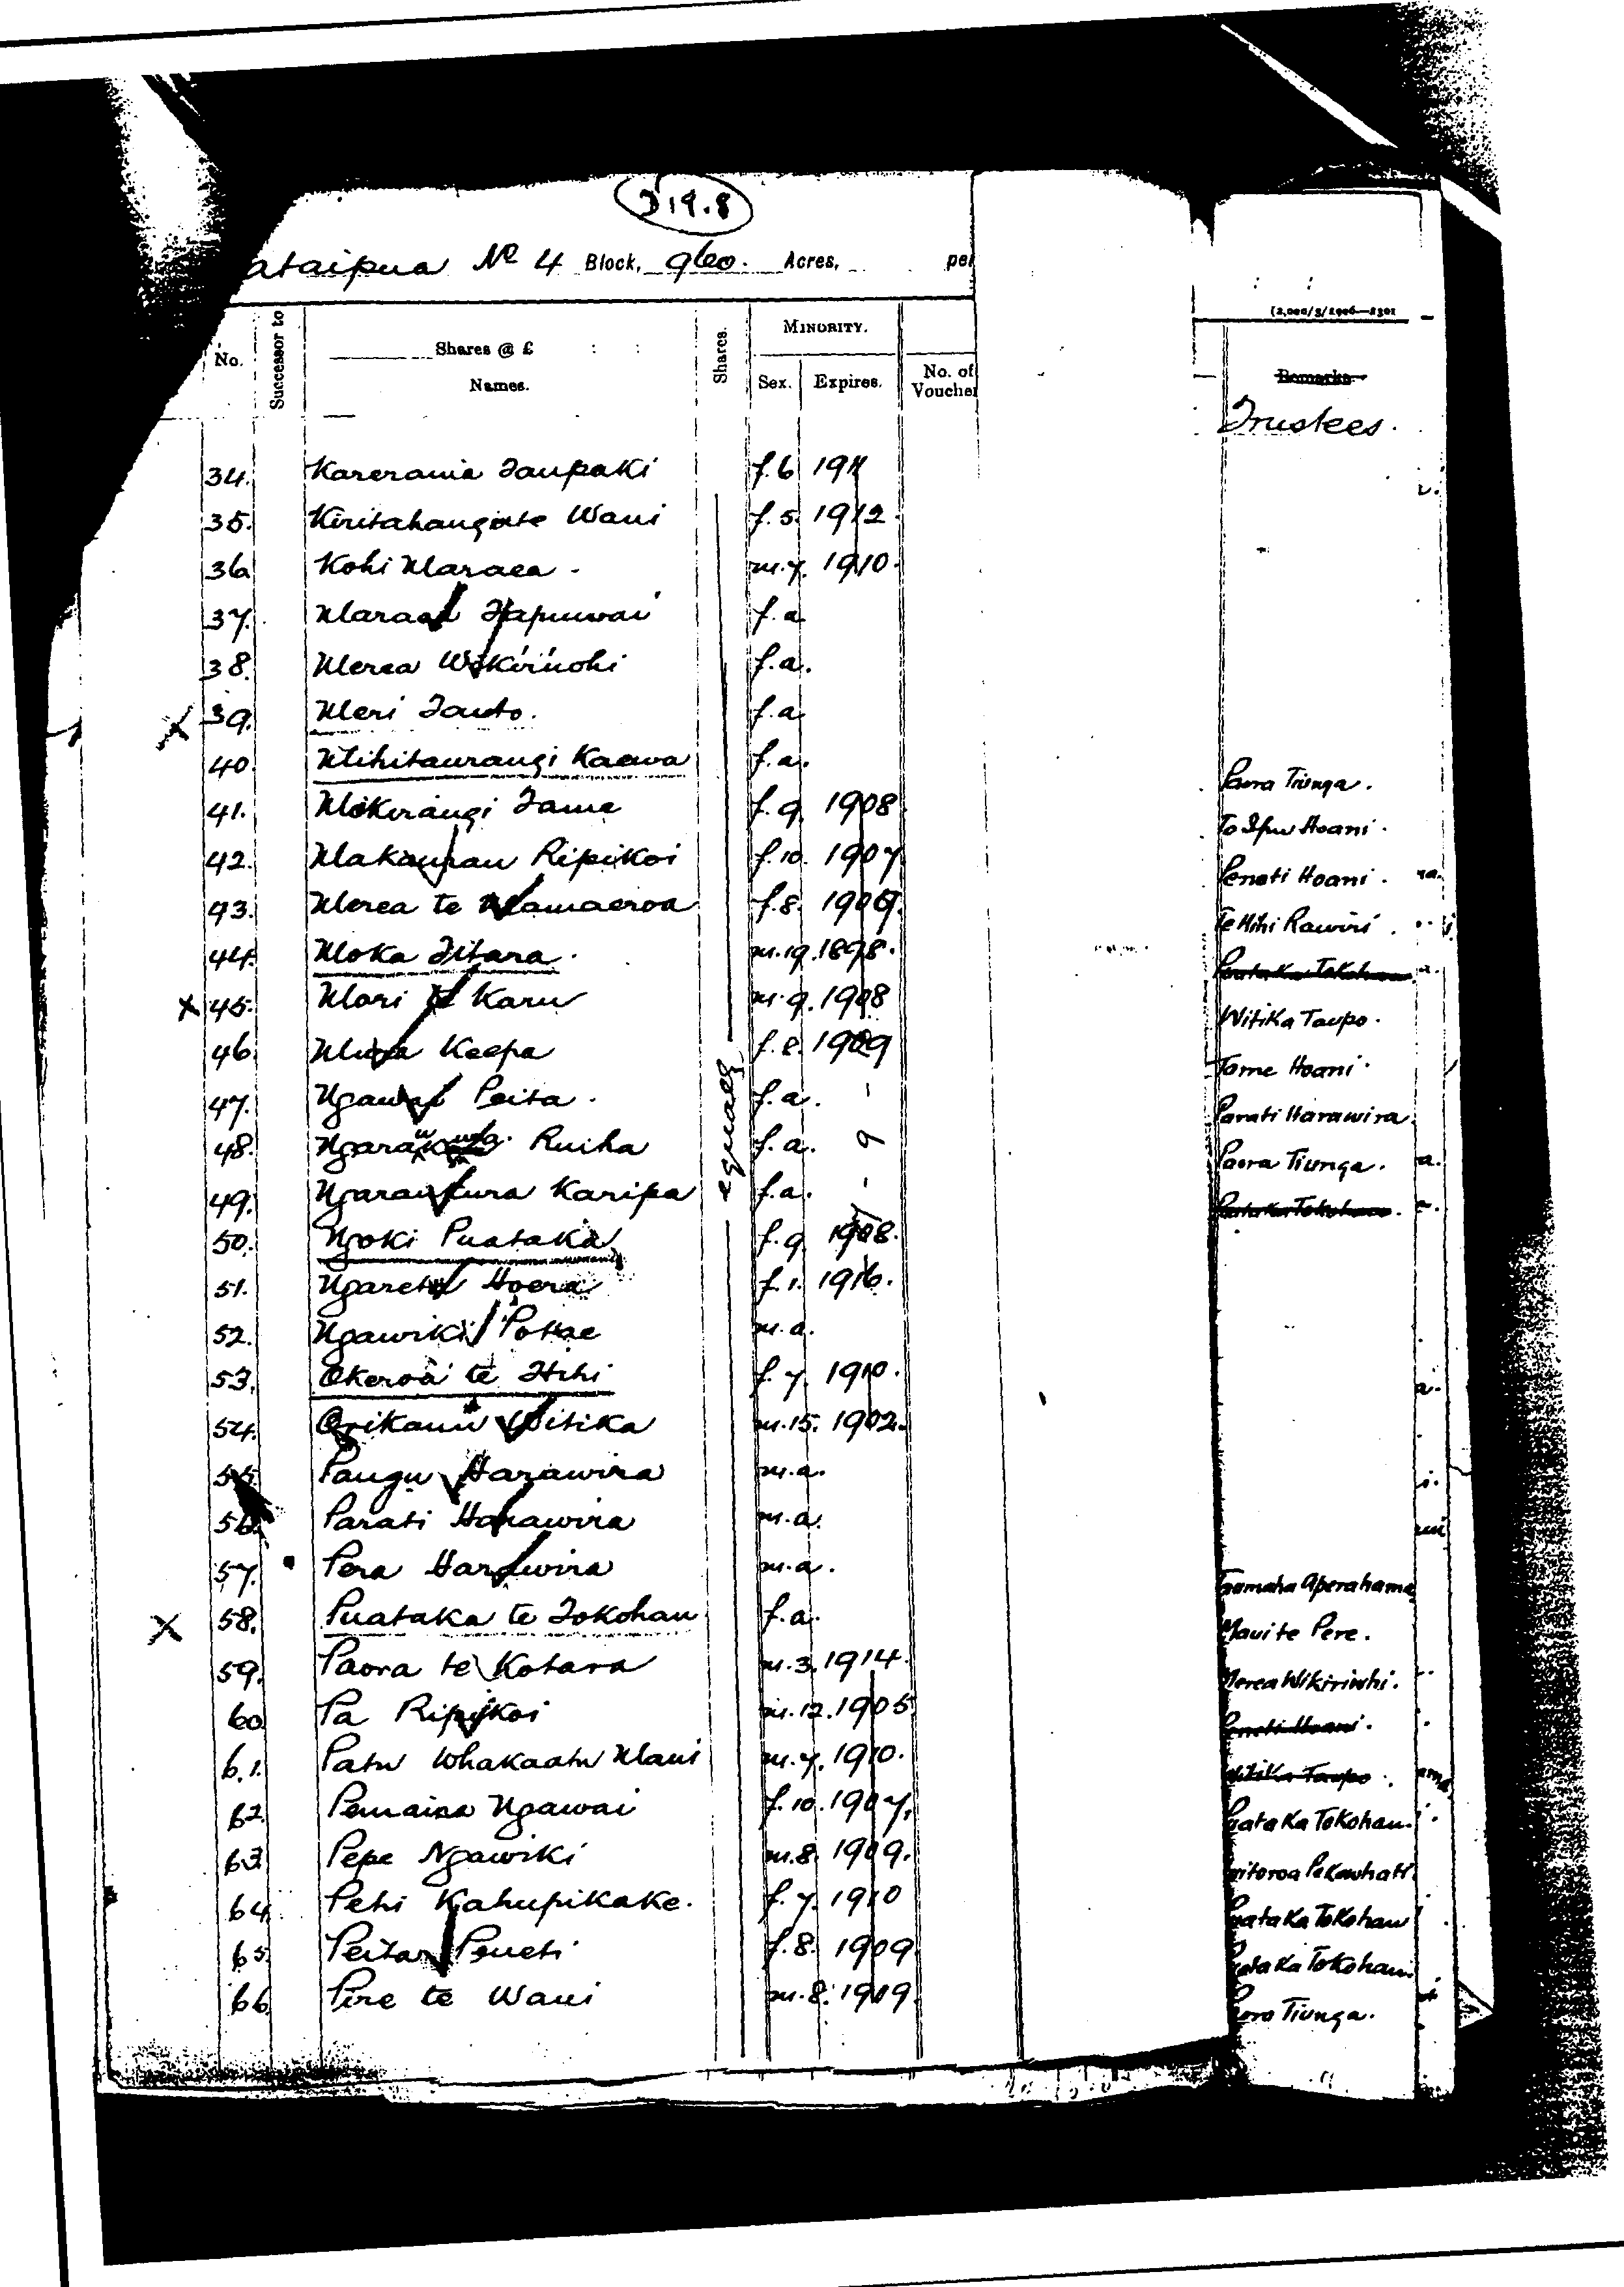 J19.8
ataipua No 4 Block, 960. Acres, per
(2,000/3/1906—2301
No. Successor to Shares @ £ : : Names. Shares. MINORITY. Sex. Expires. No. of Voucher Remarks.
Trustees.
34. Karerawia Taupaki f. 6 1911
35. Kiritahangate Waui f. 5. 1912.
36 Kohi Maraea. m. 7. 1910.
37. Maraea Hapuwai f. a.
38. Merea Wikirinohi f. a.
X 39. Meri Tauto. f. a.
40. Mihitaurangi Kaawa f. a.
41. Mokirangi Tame f. 9. 1908 Paora Tiunga.
42. Makaurau Ripikoi f. 10. 1907 Te Ipu Hoani.
43. Merea te Mamaeroa f. 8. 1909. Peneti Hoani.
44. Moka Titara. m. 19. 1898. Te Hihi Rawiri.
X 45. Mari te Karu m. 9. 1908 Puataka Tokohau
46. Keepa f. 8. 1909 Witika Taupo.
47. Ngawai Peita. f. a. - Tame Hoani.
48. Ruiha f. a. 9 Parati Harawira
equally
49. Ngaraukura Karipa f. a. - Paora Tiunga.
50. Ngoki Puataka f. 9 1908. Puataka Tokohau.
51. Ngareta Hoera f. 1. 1916.
52. Ngawiki Potae m. a.
53. Okeroa te Hihi f. 7. 1910.
54. Orikauu Witika m. 15. 1902.
55. Paugu Harawira m. a.
56. Parati Harawira m. a.
57. Pera Harawira m. a.
X 58. Puataka te Tokohau f. a. Taumaha Aperahama
59. Paora te Kotara m. 3. 1914. Maui te Pere.
60 Pa Ripikoi m. 12. 1905 Merea Wikirinohi.
61. Patu Whakaatu Maui m. 7. 1910. Peneti Hoani.
62. Pemaina Ngawai f. 10. 1907. Witika Taupo.
63 Pepe Ngawiki m. 8. 1909. Puataka Tokohau.
64. Pehi Kahupikake. f. 7. 1910
65. Peita Peneti f. 8. 1909 Puataka Tokohau
66 Pire te Waui m. 8. 1909. Puataka Tokohau
Paora Tiunga.